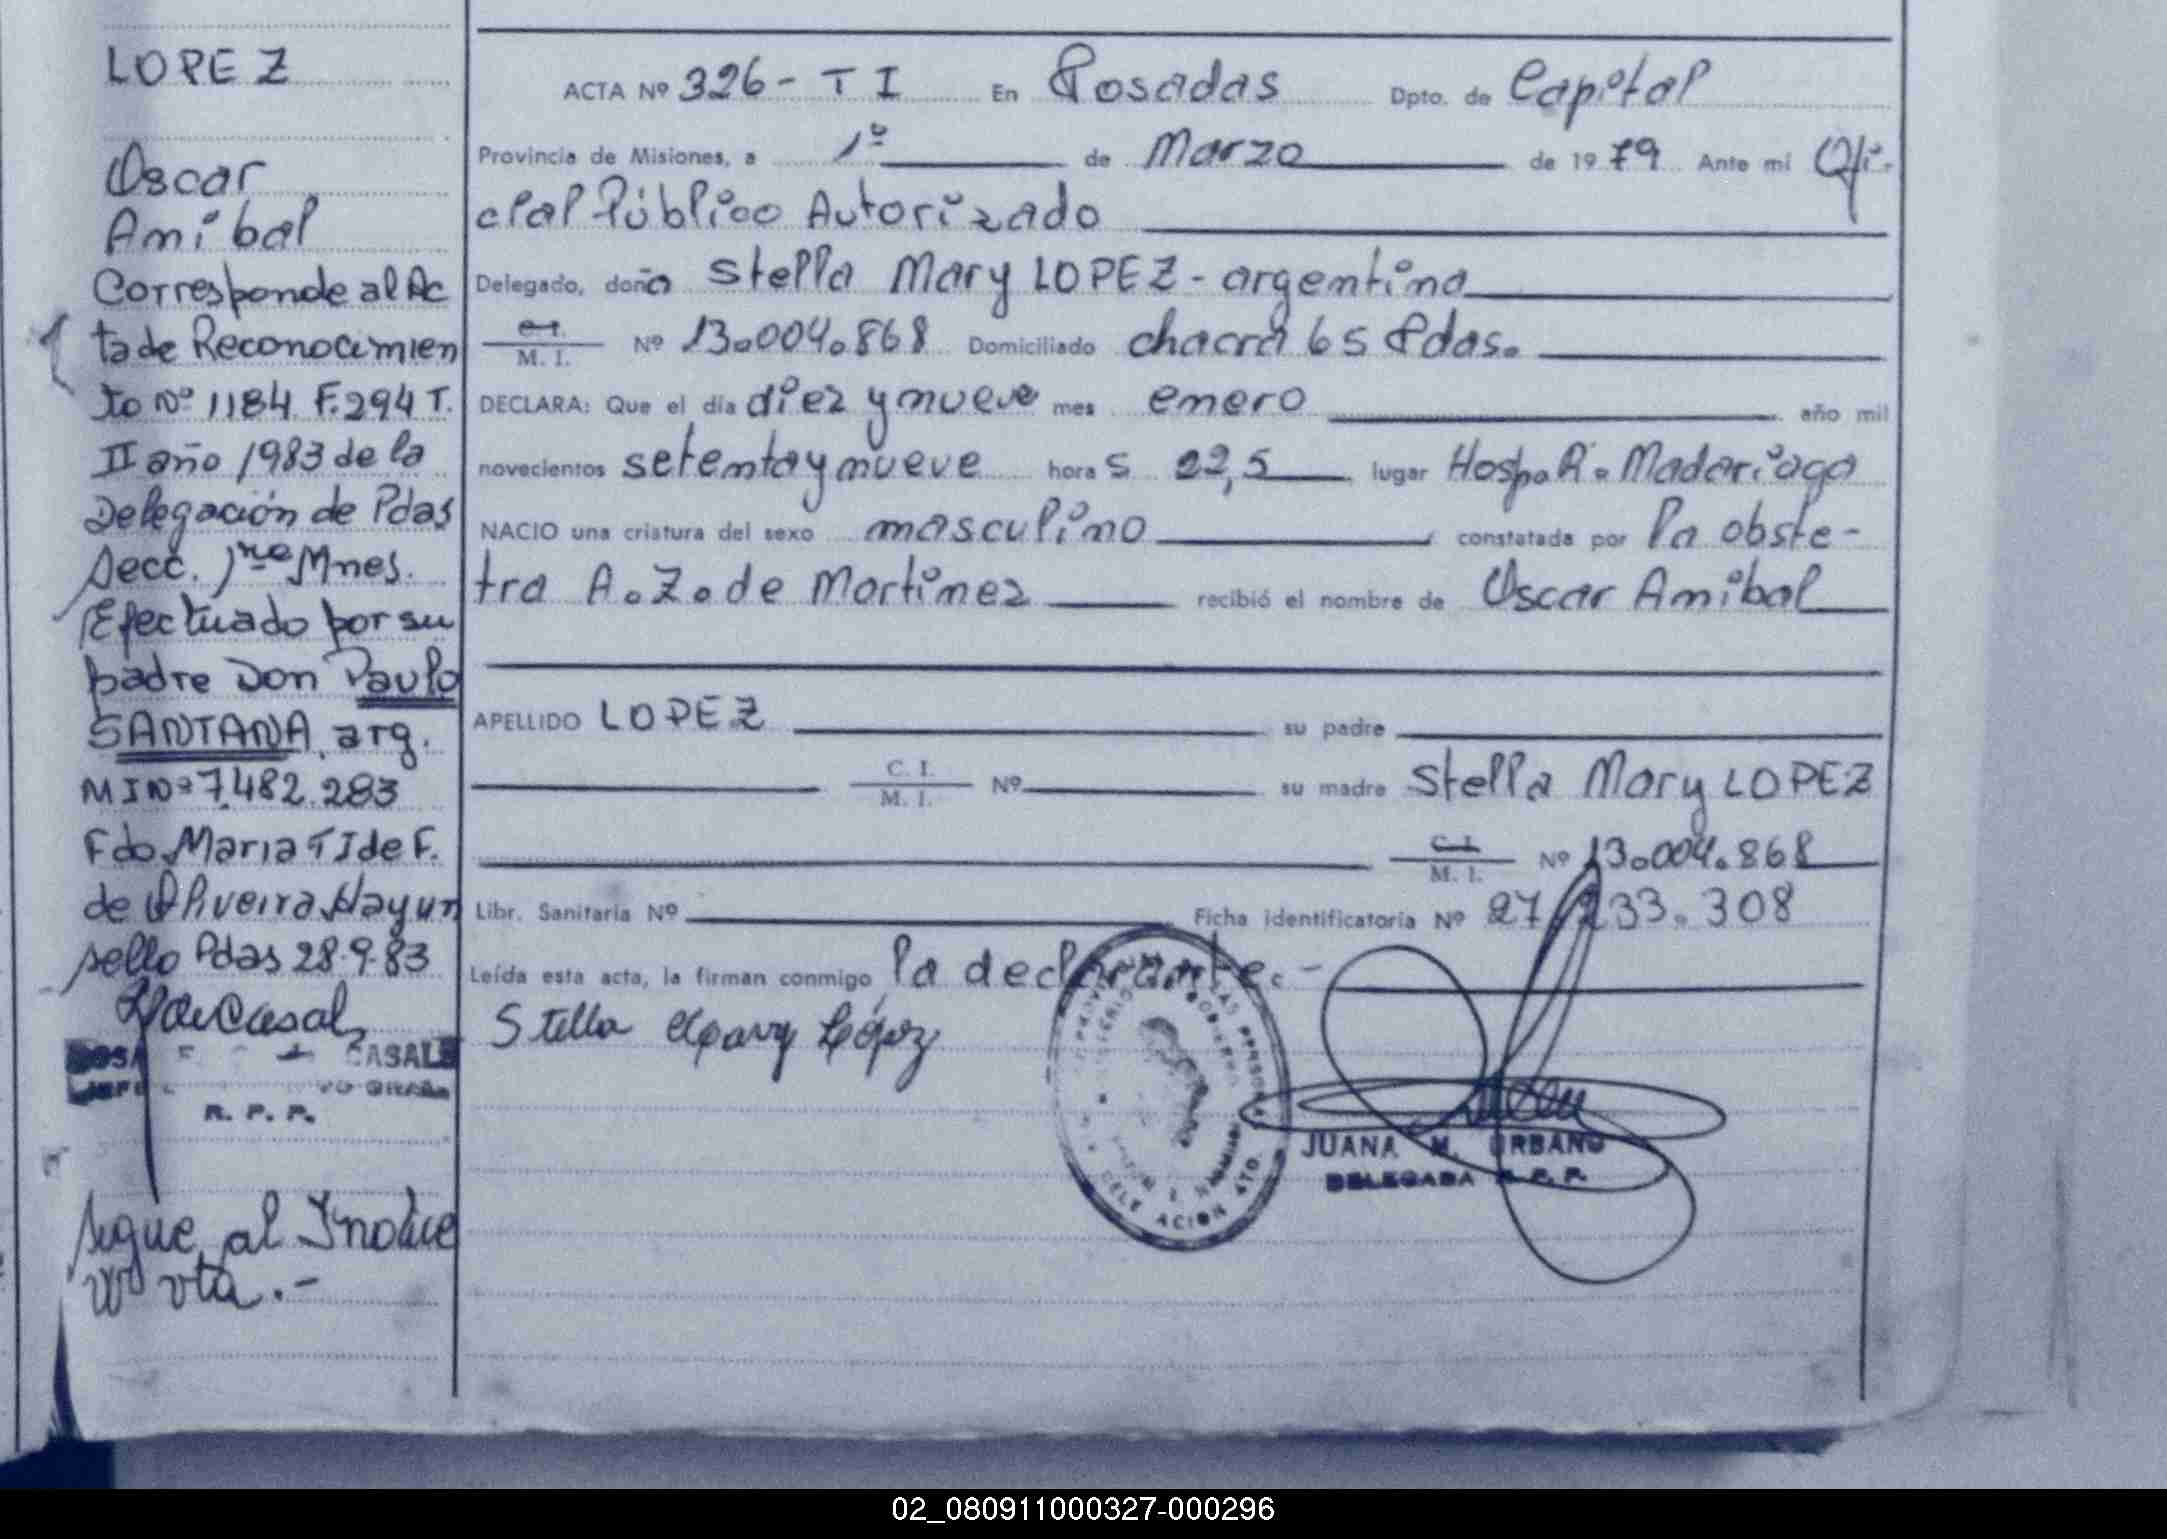 LOPEZ
Oscar
Anibal
Corresponde al Ac
ta de Reconocimien
to Nº 1184 F.294 T.
II año 1983 de la
Delegación de Pdas
Secc. 1ra Mnes.
Efectuado por su
padre Don Paulo
SANTANA, arg.
MI Nº 7.482.283
Fdo. Maria T I de F.
de Oliveira Hay un
sello Pdas 28.9.83
CASALE
R. P. P.
Sigue al Indice
vta.-
ACTA Nº 326 - T I En Posadas Dpto. de Capital
Provincia de Misiones, a 1º de Marzo de 1979 Ante mi Ofi-
cial Público Autorizado
Delegado, doña Stella Mary LOPEZ - argentina
C.I. M. I. Nº 13.004.868 Domiciliado chacra 65 Pdas.
DECLARA: Que el día diez y nueve mes enero año mil
novecientos setenta y nueve horas 22,5 lugar Hosp. R. Madariaga
NACIO una criatura del sexo masculino constatada por la obste-
tra A. Z. de Martinez recibió el nombre de Oscar Anibal
APELLIDO LOPEZ su padre
C. I. M. I. Nº su madre Stella Mary LOPEZ
C. I. M. I. Nº 13.004.868
Libr. Sanitaria Nº Ficha identificatoria Nº 27.233.308
Leída esta acta, la firman conmigo la declarante.-
Stella Mary López
JUANA M. URBANO
DELEGADA R. P. P.
02_080911000327-000296